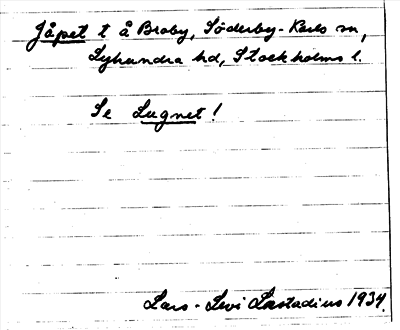 Jåpet t å Broby, Söderby-Karls sn,
Lyhundra hd, Stockholms l.
Se Lugnet!
Lars-Levi Læstadius 1934.